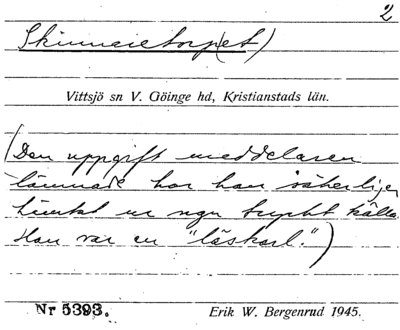 2
Skinnaretorp(et)
Vittsjö sn V. Göinge hd, Kristianstads län.
(Den uppgift meddelaren
lämnade har han säkerligen
hämtat ur ngn tryckt källa.
Han var en "läskarl.")
Nr 5393.
Erik W. Bergenrud 1945.